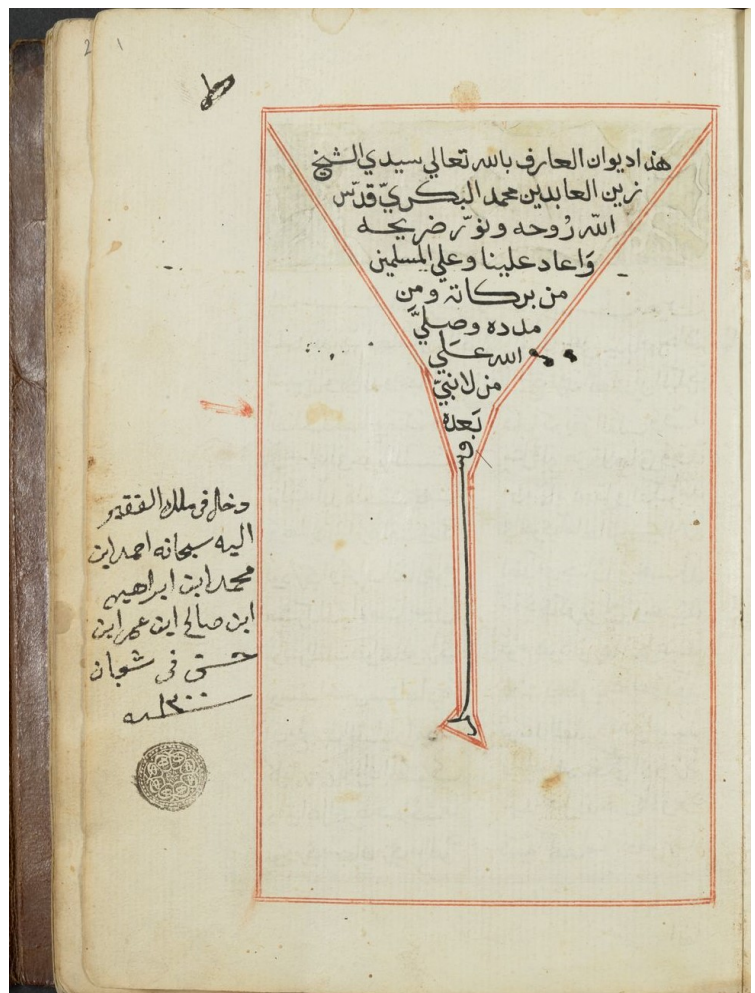 هذا ديوان العارف بالله تعالي سيدي الشيخ
زين العابدين محمد البكريّ قدّس
الله رُوحه ونوّر ضريحه
وَاعاد علينا وعلي المسلمين
من بركاته ومن
مدده وصليَّ
الله عَلَي
من لا نبيّ
بَعده
دخل في ملك الفقير
اليه سبحانه احمد ابن
محمد ابن ابراهيم
ابن صالح ابن عمر ابن
في شعبان
سنة ١٣٠٠